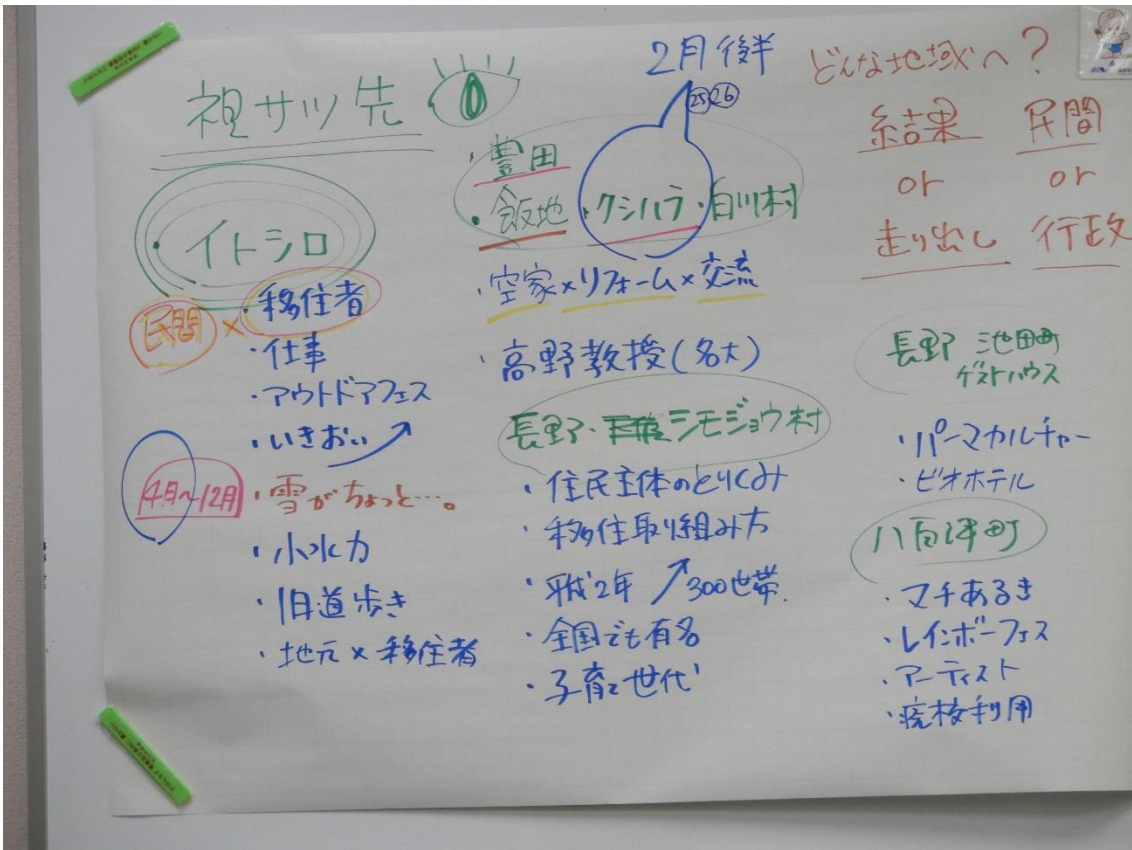 視サツ先
・イトシロ
民間×・移住者
・仕事
・アウトドアフェス
・いきおい
4月~12月 ・雪がちょっと…。
・小水力
・旧道歩き
・地元×移住者
2月後半
25 26
・豊田
・飯地・クシハラ・白川村
・空家×リフォーム×交流
・高野教授(名大)
長野・シモジョウ村
・住民主体のとりくみ
・移住取り組み方
・平成2年 ↗300世帯.
・全国でも有名
・子育て世代
どんな地域へ?
結果 民間
or or
走り出し 行政
長野 池田町
ゲストハウス
・パーマカルチャー
・ビオホテル
八百津町
・マチあるき
・レインボーフェス
・アーティスト
・廃校利用